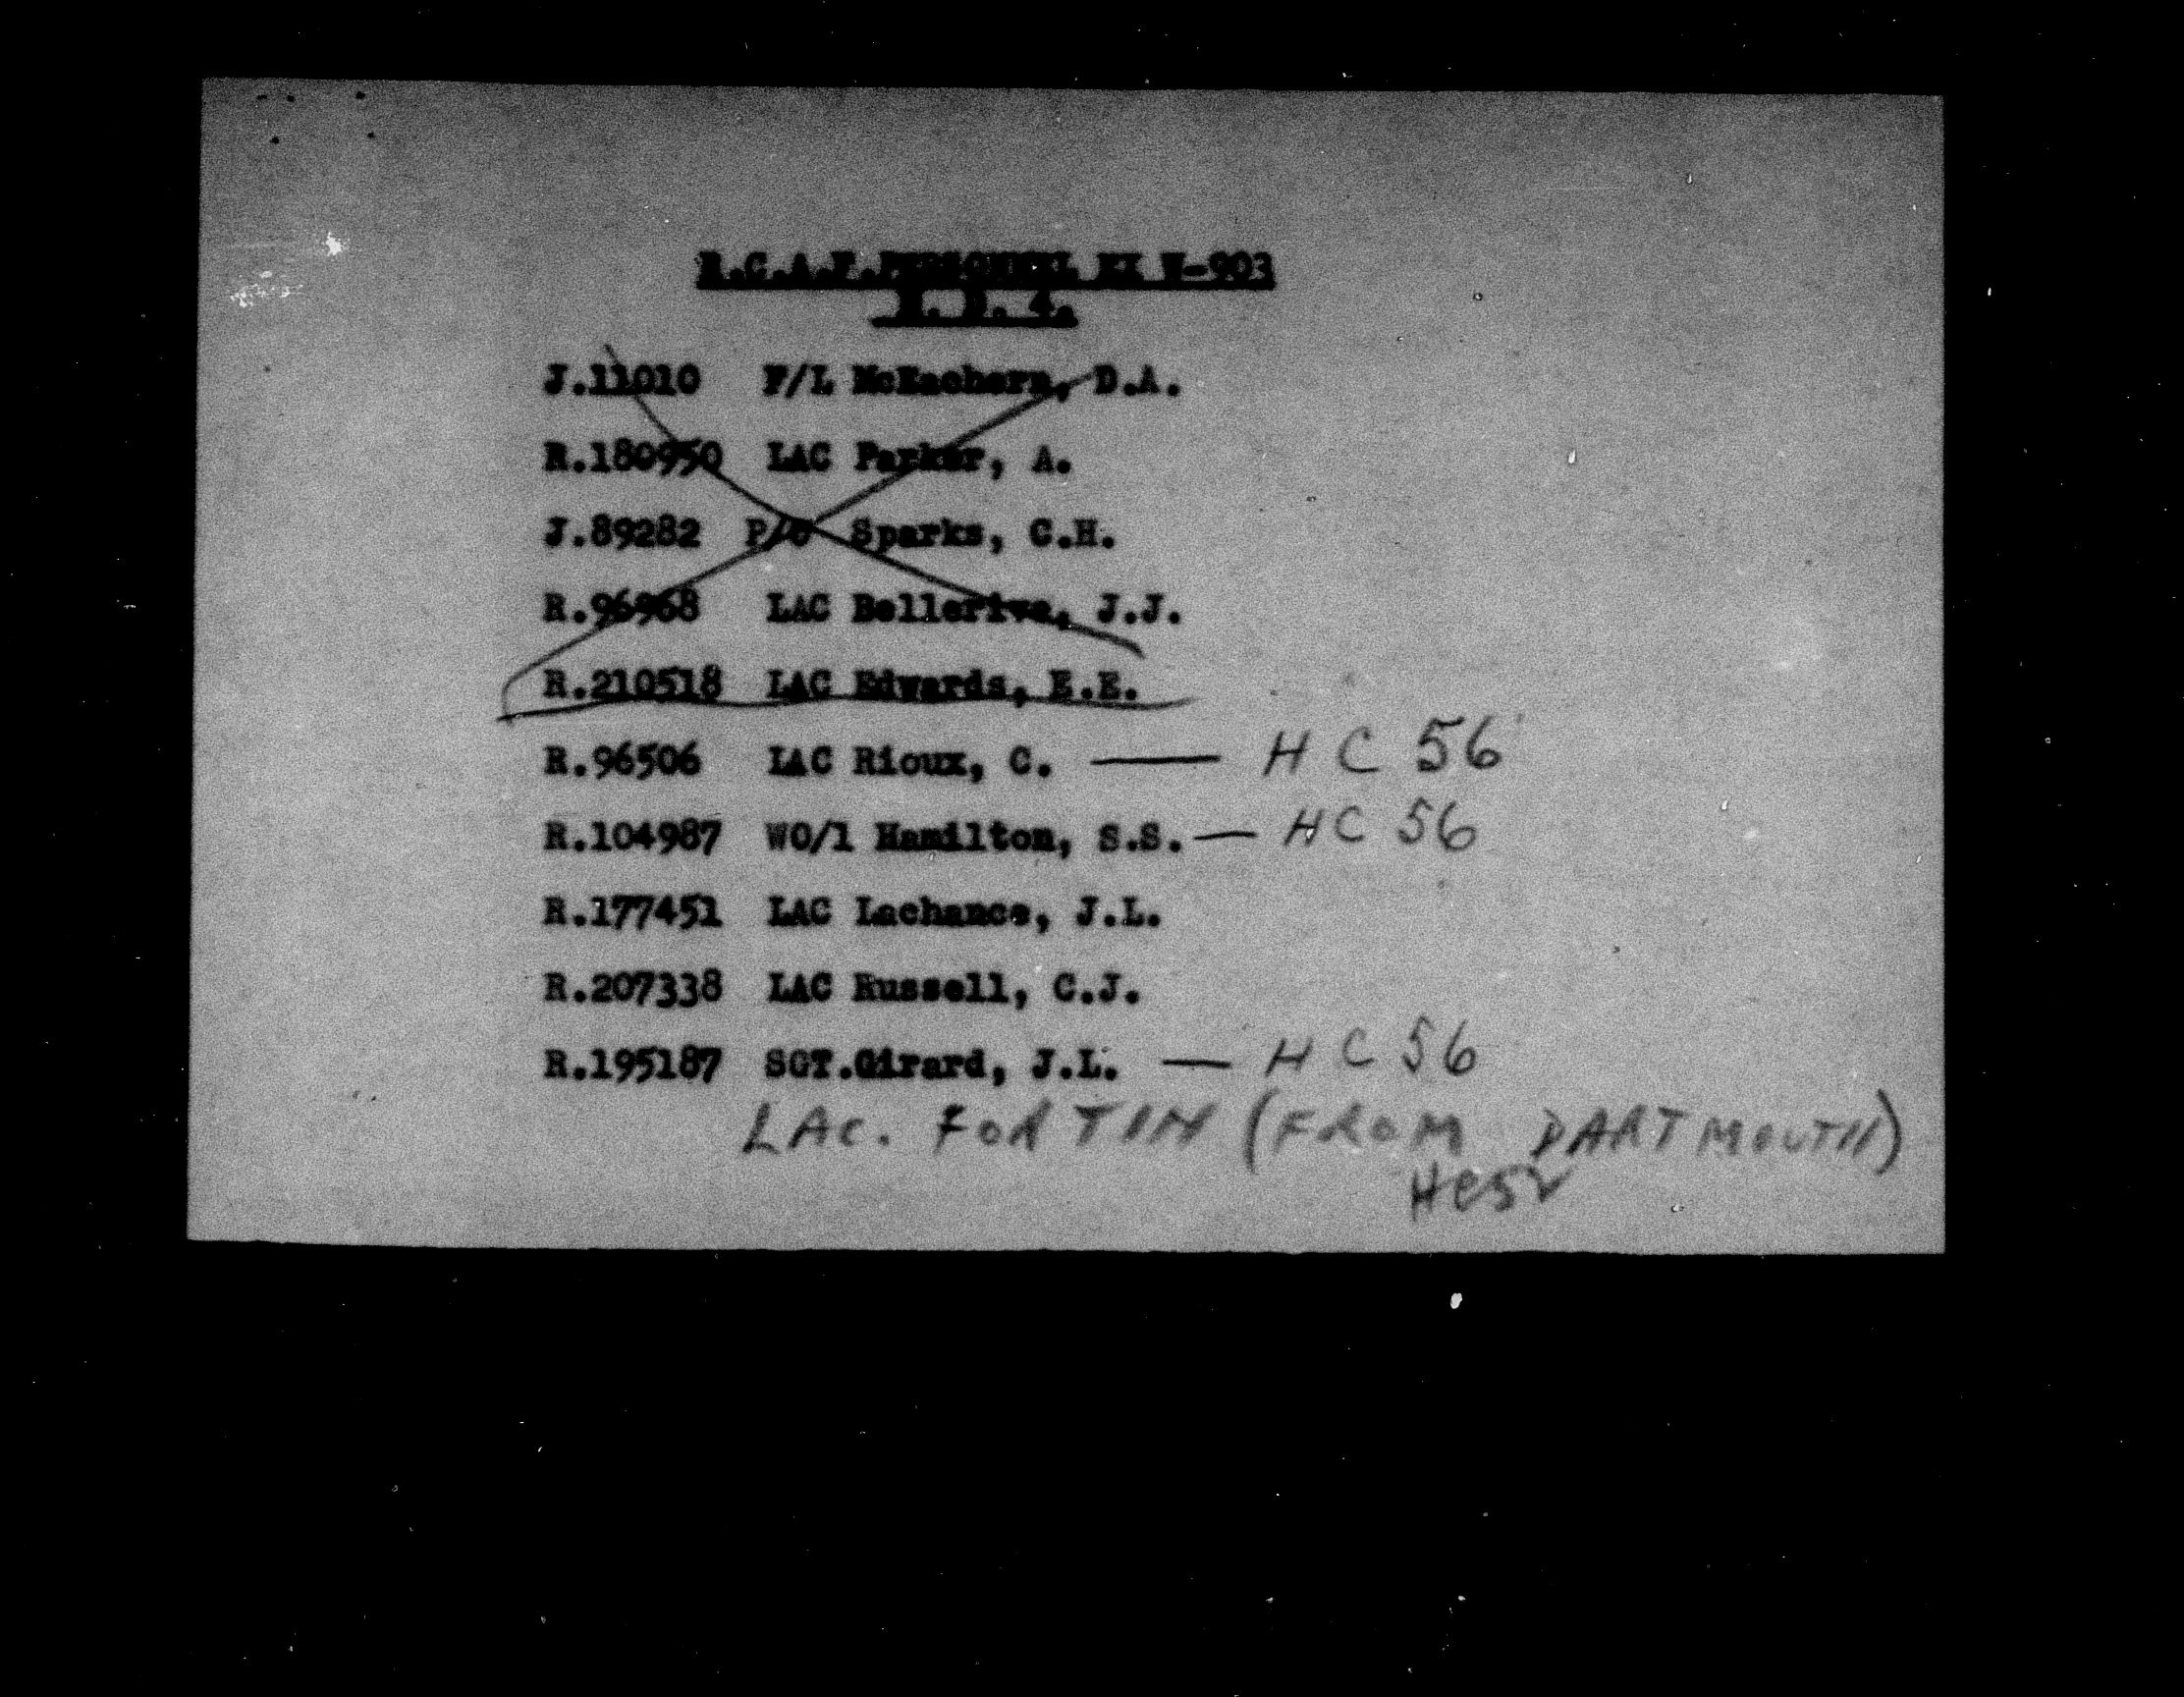 R.C.A.F. PERSONNEL EX W-903
J.11010 F/L McEachern, D.A.
R.180950 LAC Parker, A.
J.89282 P/O Sparks, C.H.
R.96968 LAC Bellerive, J.J.
R.210518 LAC Edwards, E.E.
R.96506 LAC Rioux, C. — HC 56
R.104987 WO/1 Hamilton, S.S. — HC 56
R.177451 LAC Lachance, J.L.
R.207338 LAC Russell, C.J.
R.195187 SGT.Girard, J.L. — HC 56
LAC. FORTIN (FROM DARTMOUTH)